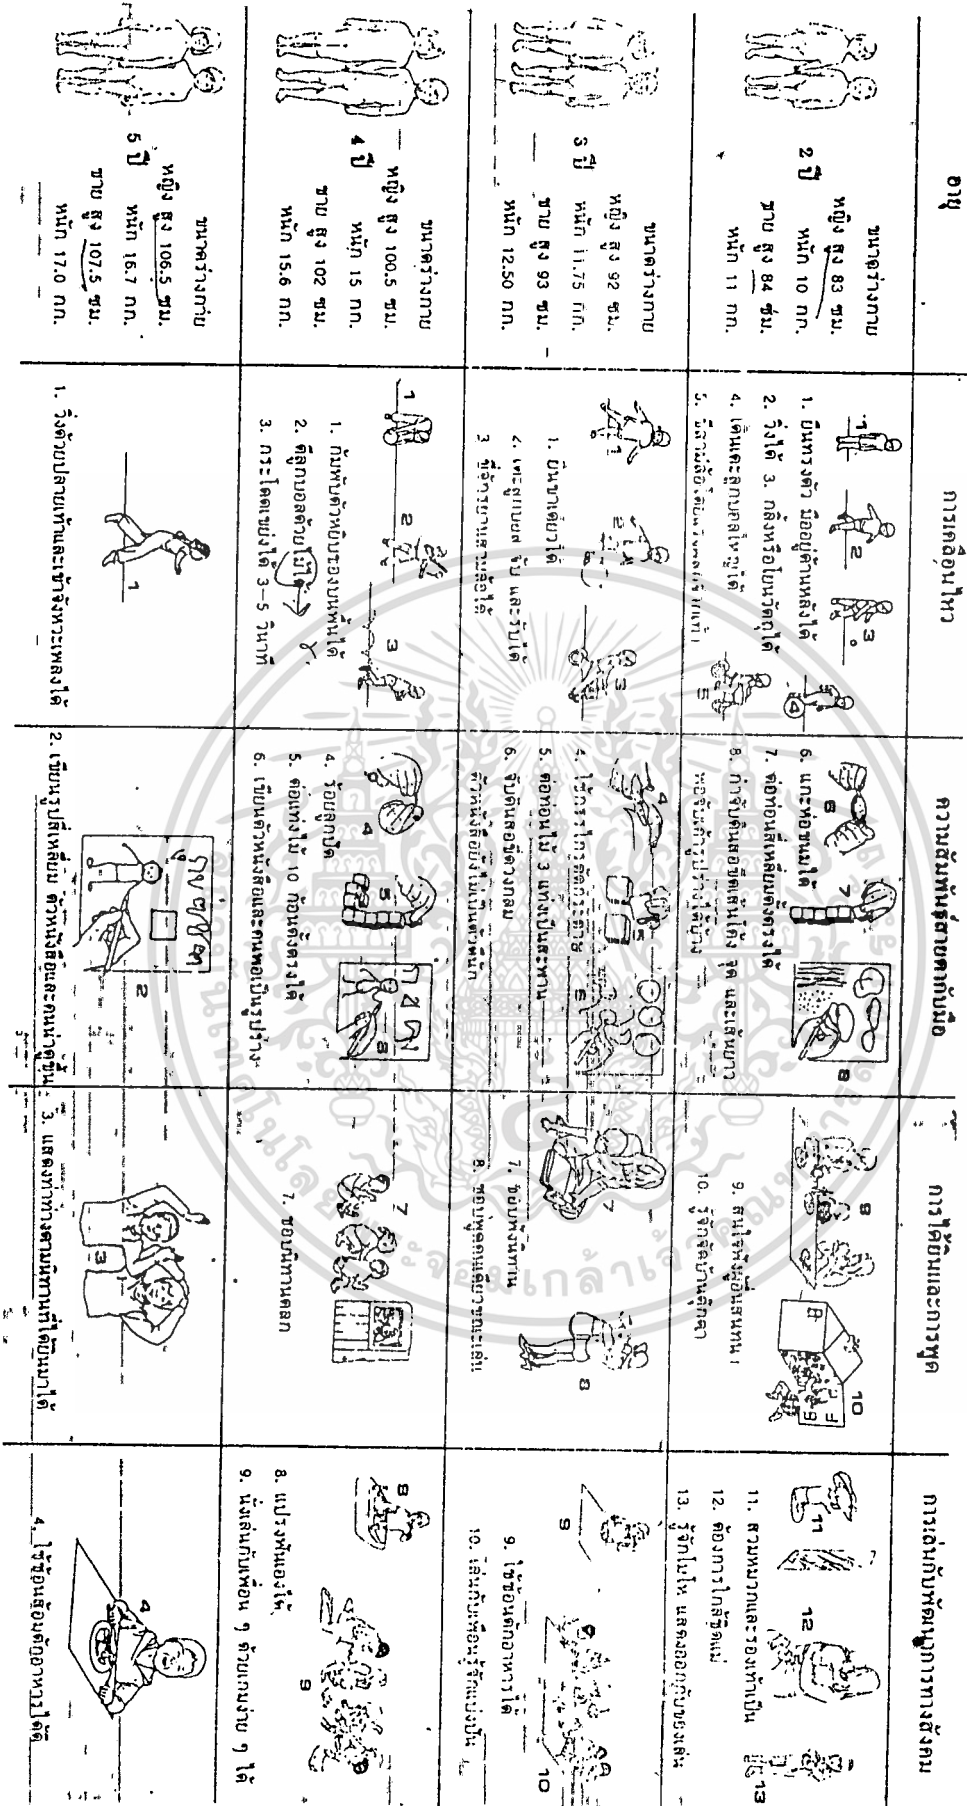 อายุ
การเคลื่อนไหว
ความสัมพันธ์สายตากับมือ
การได้ยินและการพูด
การเล่นกับพัฒนาการทางสังคม
2 ปี
ขนาดร่างกาย
หญิง สูง 83 ซม.
หนัก 10 กก.
ชาย สูง 84 ซม.
หนัก 11 กก.
1
2
3
4
5
1. ยืนทรงตัว มืออยู่ด้านหลังได้
2. วิ่งได้ 3. กลิ้งหรือโยนวัตถุได้
4. เดินเตะลูกบอลใหญ่ได้
6
7
8
6. แกะห่อขนมได้
7. ต่อท่อนสี่เหลี่ยมตั้งตรงได้
8. กำจับดินสอขีดเส้นโค้ง จุด และเส้นยาว
9
10
9. สนใจฟังผู้อื่นสนทนา
10. รู้จักจัดบ้านตุ๊กตา
11
12
13
11. สวมหมวกและรองเท้าเป็น
12. ต้องการใกล้ชิดแม่
13. รู้จักโมโห แสดงออกกับของเล่น
3 ปี
ขนาดร่างกาย
หญิง สูง 92 ซม.
หนัก 11.75 กก.
ชาย สูง 93 ซม.
หนัก 12.50 กก.
1
2
3
1. ยืนขาเดียวได้
2. เตะลูกบอล จับ และรับได้
3 ขี่จักรยานสามล้อได้
4
5
6
4. ใช้กรรไกรตัดกระดาษ
5. ต่อท่อนไม้ 3 แท่งเป็นสะพาน
6. จับดินสอขีดวงกลม
ตัวหนังสือยังไม่เป็นตัวนัก
7
8
7. ชอบฟังนิทาน
8. ชอบพูดคนเดียวขณะเล่น
9
10
9. ใช้ช้อนตักอาหารได้
10. เล่นกับเพื่อนรู้จักแบ่งปัน
4 ปี
ขนาดร่างกาย
หญิง สูง 100.5 ซม.
หนัก 15 กก.
ชาย สูง 102 ซม.
หนัก 15.6 กก.
1
2
3
1. ก้มพับตัวหยิบของบนพื้นได้
2. ตีลูกบอลด้วยไม้ได้
3. กระโดดเขย่งได้ 3-5 วินาที
4
5
6
4. ร้อยลูกปัด
5. ต่อแท่งไม้ 10 ก้อนตั้งตรงได้
6. เขียนตัวหนังสือและคนพอเป็นรูปร่าง
7
7. ชอบนิทานตลก
8
9
8. แปรงฟันเองได้
9. นั่งเล่นกับเพื่อน ๆ ด้วยเกมง่าย ๆ ได้
5 ปี
ขนาดร่างกาย
หญิง สูง 106.5 ซม.
หนัก 16.7 กก.
ชาย สูง 107.5 ซม.
หนัก 17.0 กก.
1
1. วิ่งด้วยปลายเท้าและเข้าจังหวะเพลงได้
2
2. เขียนรูปสี่เหลี่ยม ตัวหนังสือและคนน่าดูขึ้น
3
3. แสดงท่าทางตามนิทานที่ได้ยินมาได้
4
4. ใช้ช้อนส้อมตักอาหารได้ดี